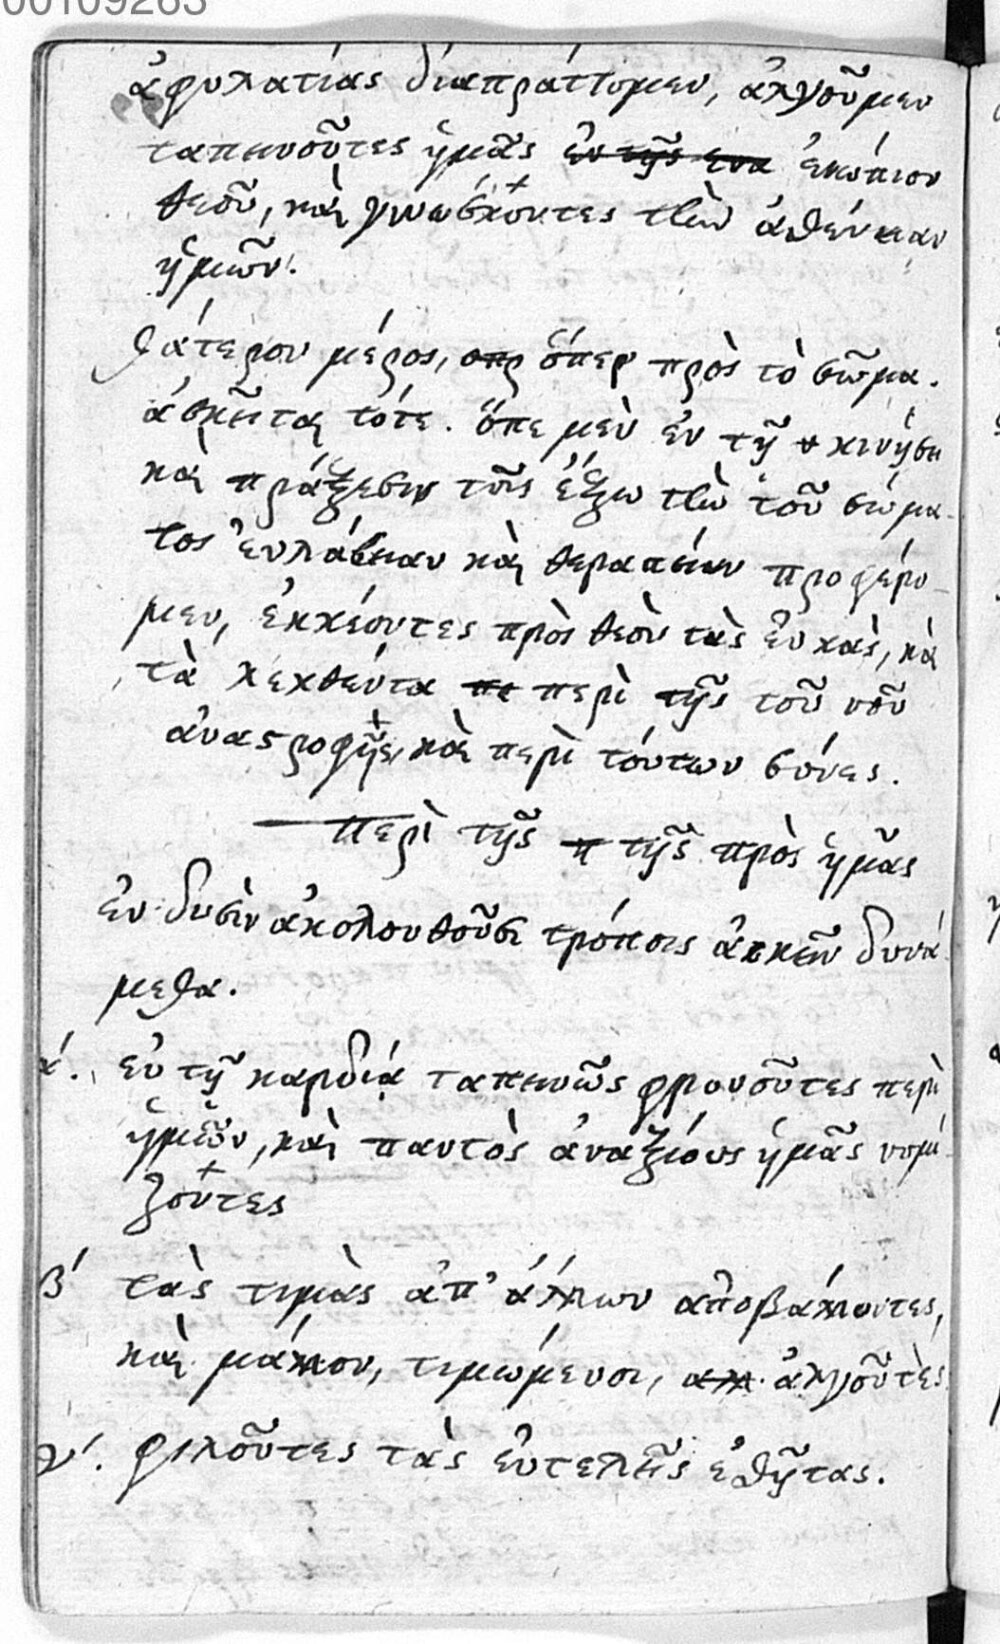 00109263
ἀφυλατίας διαπράττομεν, ἀλγοῦμεν
ταπεινοῦντες ἡμᾶς ἐν τῆς ενα ἐνώπιον
θεοῦ, καὶ γινώσκοντες τὴν ἀσθένειαν
ἡμῶν.
θάτερον μέρος, οπρ ὅπερ πρὸς τὸ σῶμα.
ἀσκεῖται τότε. ὅτε μὲν ἐν τῇ κινήσει
καὶ πράξεσιν τοῖς ἔξω τὴν τοῦ σώμα-
τος ἐυλάβειαν καὶ θεραπείαν προφέρο-
μεν, ἐκχέοντες πρὸς θεὸν τὰς εὐχὰς, καὶ
τὰ λεχθέντα πε περὶ τῆς τοῦ νοῦ
ἀναστροφῆς, καὶ περὶ τούτων σύνες.
περὶ τῆς π τῆς πρὸς ἡμᾶς
ἐν δυσὶν ἀκολουθοῦσι τρόποις ἀσκεῖν δυνά-
μεθα.
α΄. ἐν τῇ καρδίᾳ ταπεινῶς φρονοῦντες περὶ
ἡμῶν, καὶ παντὸς ἀναξίους ἡμᾶς νομί-
ζοντες
β΄ τὰς τιμὰς ἀπ' ἄλλων ἀποβάλλοντες,
καὶ μάλλον, τιμώμενοι, αλλ ἀλγοῦντὲς
γ΄. φιλοῦντες τὰς εὐτελεῖς ἐσθῆτας.